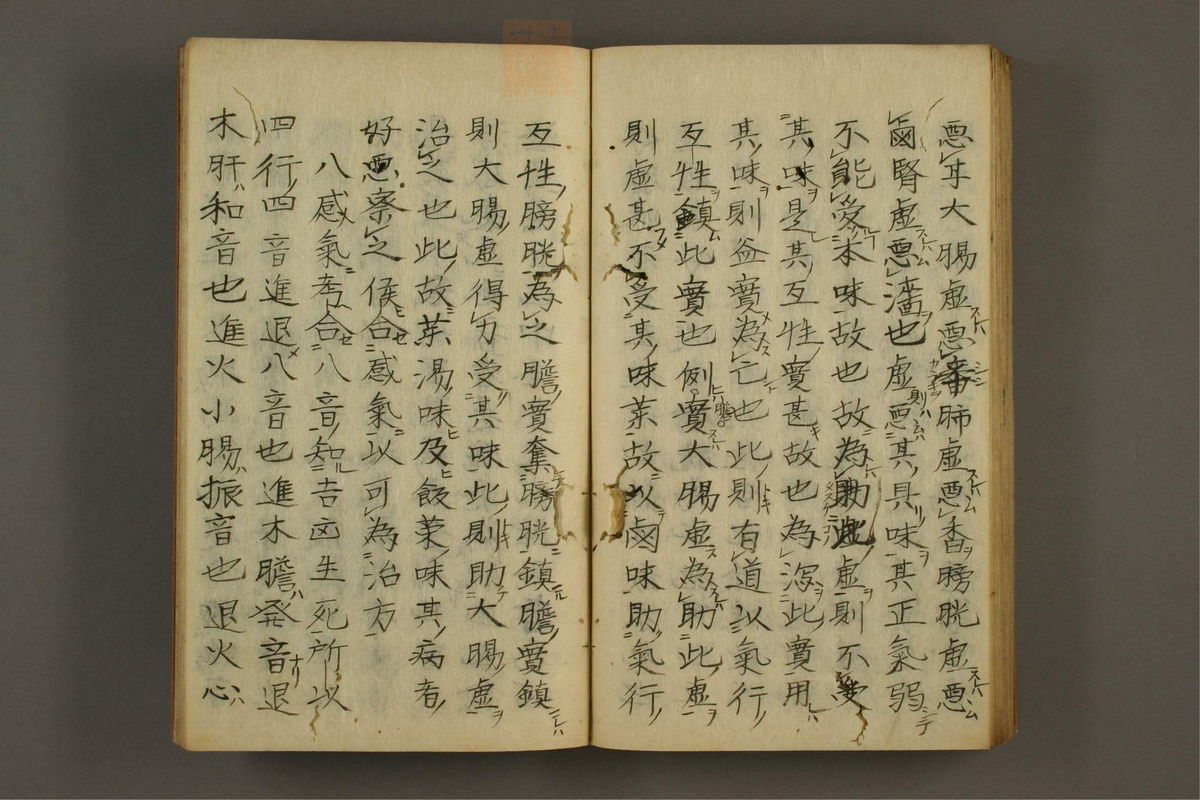 悪耳大腸虚悪審肺虚悪香膀胱虚悪
鹵腎虚悪濇也虚則悪其具味其正氣弱
不能受本味故也故為助此虚則不受
其味是其互性實甚故也為瀉此實用
其味則益實為亡也此則有道以氣行
互性鎮此實也例實大腸虚為助此虚
則虚甚不受其味薬故以鹵味助氣行
互性膀胱為之膽實奪膀胱鎮膽實鎮
則大腸虚得力受其味此則助大腸虚
治之也此故薬湯味及飯菜味其病者
好悪察之候合感氣以可為治方
八感氣考合八音知吉凶生死所以
四行四音進退八音也進木膽発音退
木肝和音也進火小腸振音也退火心